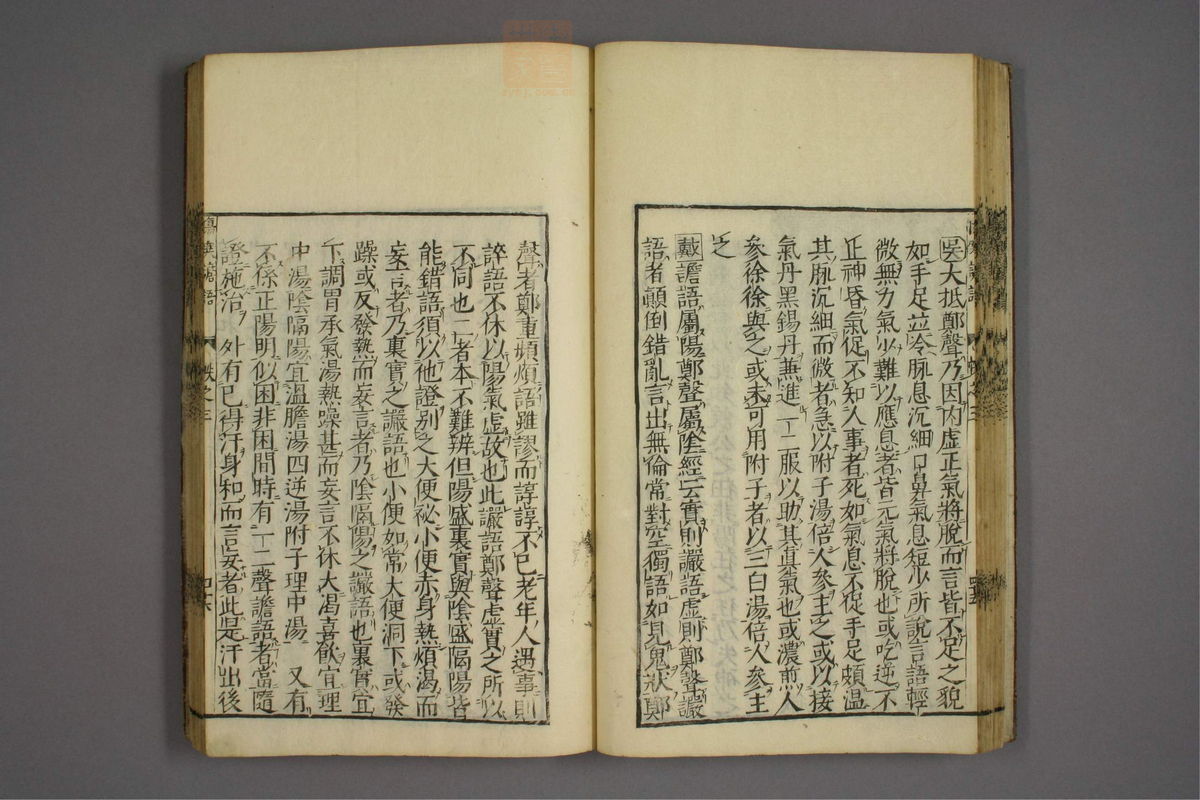 吴大抵鄭聲乃因内虚正氣將脫而言皆不足之貌
如手足並冷脉息沉細口鼻氣息短少所說言語輕
微無力氣少難以應息者皆元氣將脫也或吃逆不
止神昏氣促不知人事者死如氣息不促手足頗温
其脉沉細而微者急以附子湯倍人參主之或以接
氣丹黑錫丹兼進一二服以助其眞氣也或濃煎人
參徐徐與之或未可用附子者以三白湯倍人參主
之
戴譫語屬陽鄭聲屬陰經云實則讝語虚則鄭聲讝
語者顛倒錯亂言出無倫常對空獨語如見鬼狀鄭
聲者鄭重頻煩語雖謬而諄諄不已老年人遇事則
誶語不休以陽氣虚故也此讝語鄭聲虚實之所以
不同也二者本不難辨但陽盛裏實與陰盛隔陽皆
能錯語須以他證別之大便祕小便赤身熱煩渴而
妄言者乃裏實之讝語也小便如常大便洞下或發
躁或反發熱而妄言者乃陰隔陽之讝語也裏實宜
下調胃承氣湯熱躁甚而妄言不休大渴喜飲宜理
中湯陰隔陽宜温膽湯四逆湯附子理中湯 又有
不係正陽明似困非困間時有一二聲譫語者當隨
證施治 外有已得汗身和而言妄者此是汗出後